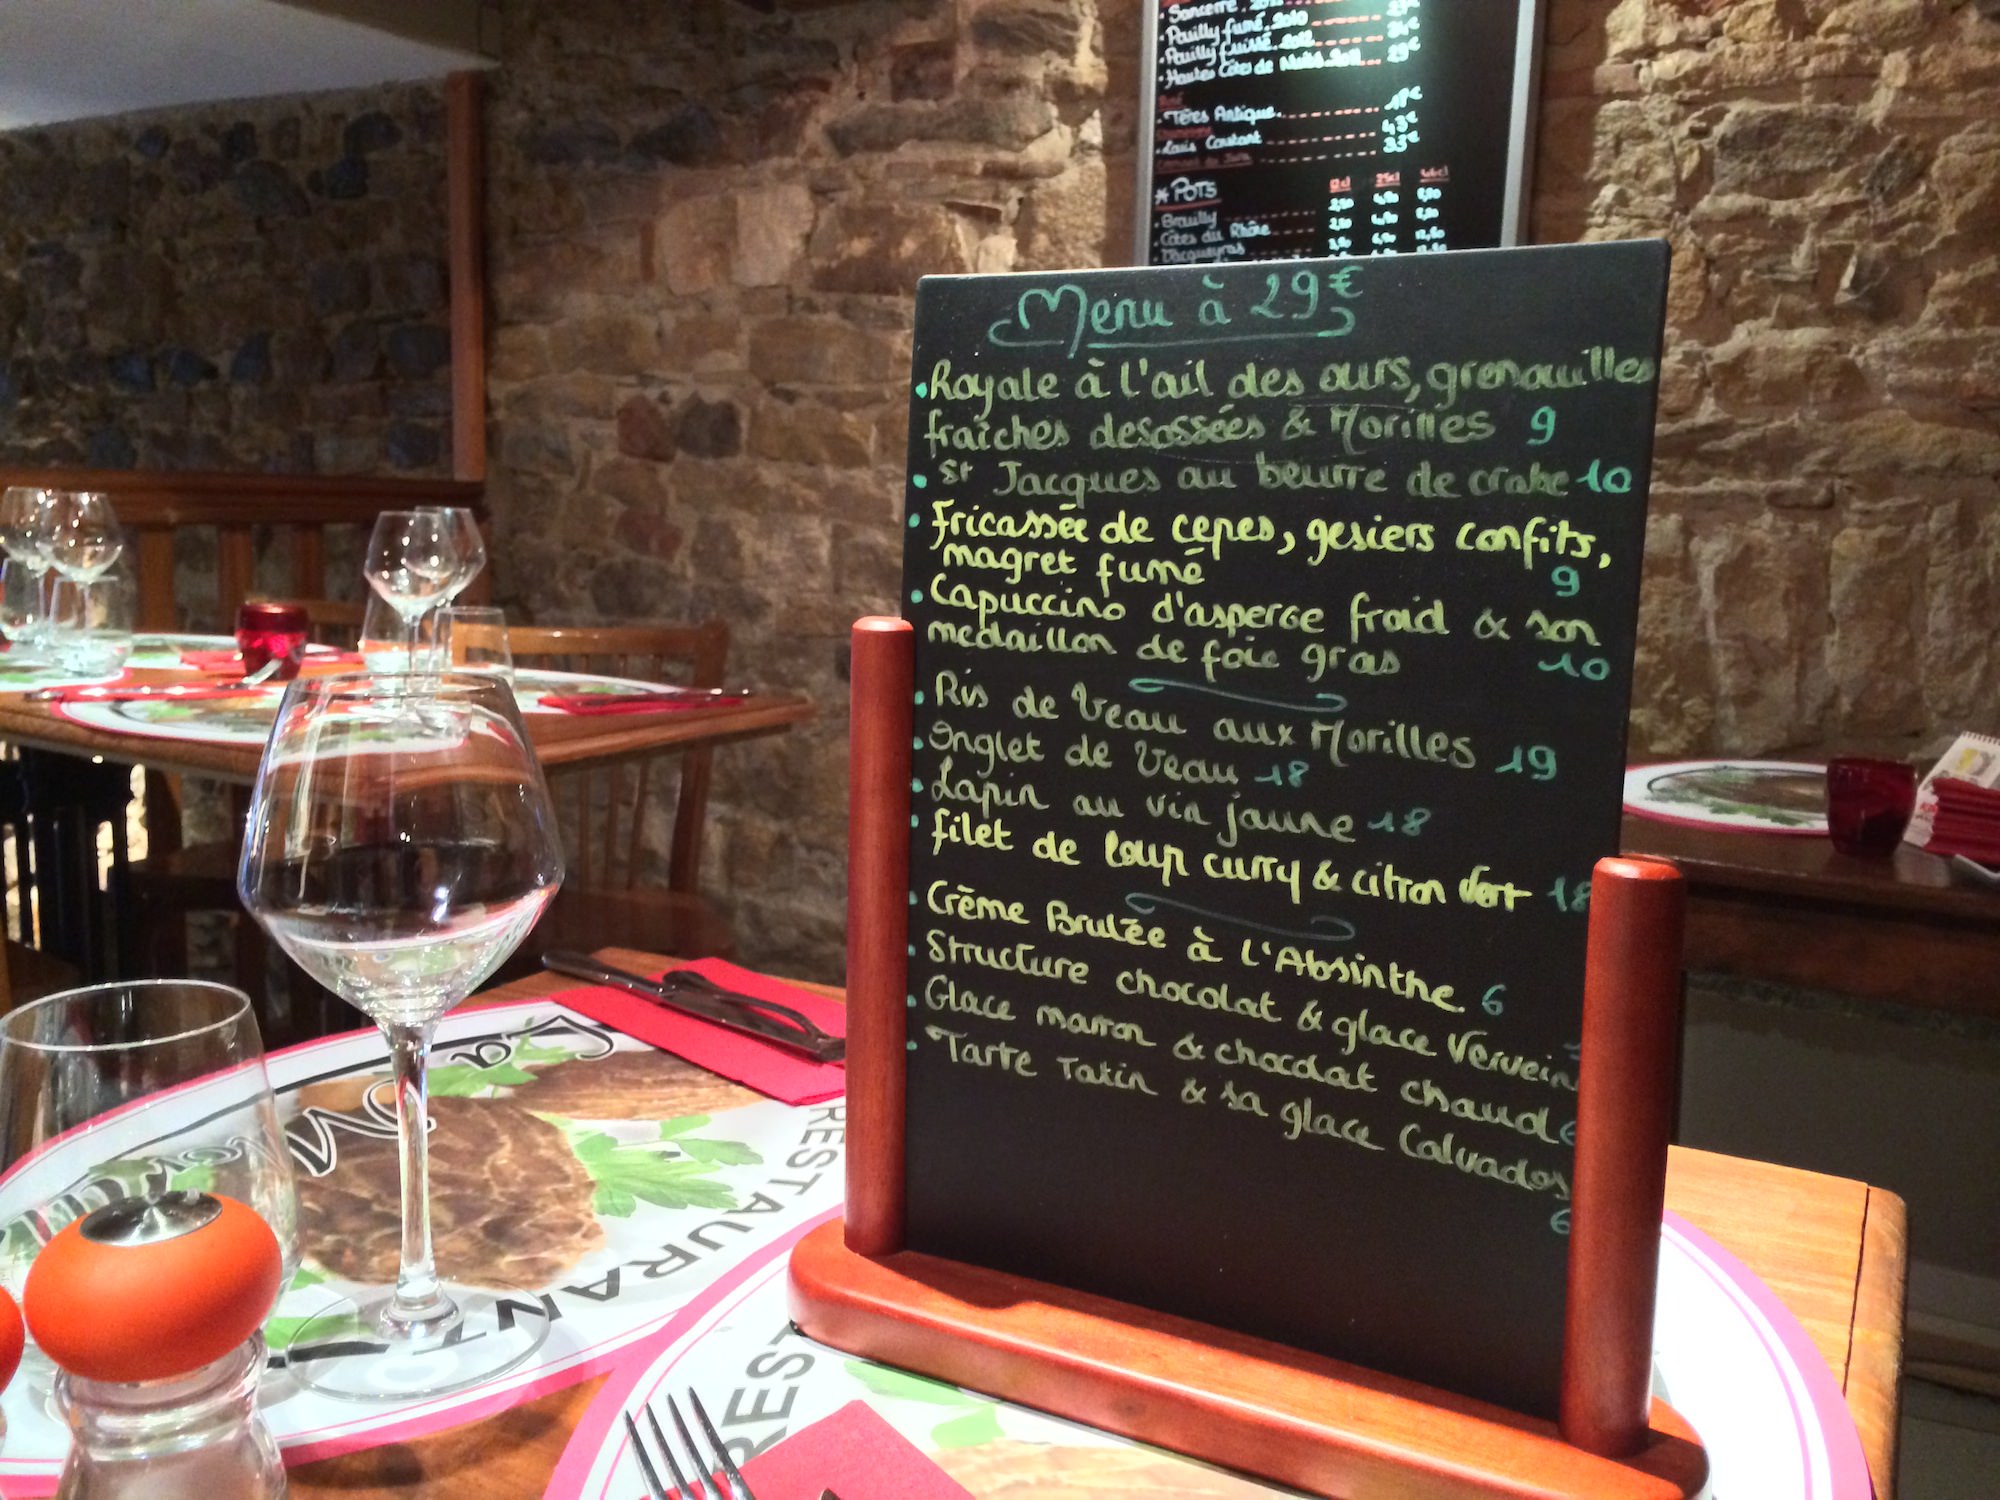 Sancerre
Pouilly fumé 2010
Pouilly fuissé 2012 34€
Hautes Côtes de Nuits 2011 29€
Antique
43€
Louis Constant 35€
* POTS 12cl 25cl 46cl
Brouilly
Côtes du Rhône
Menu à 29€
• Royale à l'ail des ours, grenouilles
fraîches desossées & Morilles 9
• St Jacques au beurre de crabe 10
• Fricassée de cepes, gesiers confits,
magret fumé 9
• Capuccino d'asperge froid & son
medaillon de foie gras 10
• Ris de Veau aux Morilles 19
• Onglet de Veau 18
• Lapin au vin jaune 18
• filet de loup curry & citron vert 18
• Crème Brulée à l'Absinthe 6
• Structure chocolat & glace Vervein
• Glace marron & chocolat chaud 6
• Tarte Tatin & sa glace Calvados
6
La
RESTAURANT
RES